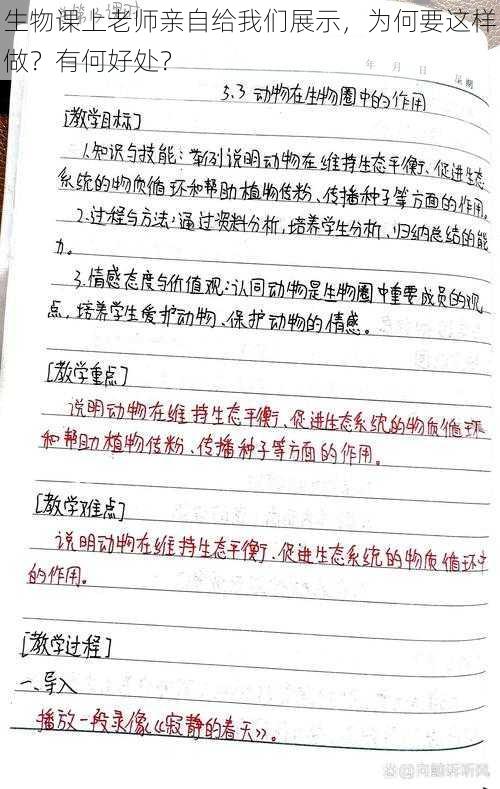 生物课上老师亲自给我们展示，为何要这样
做？有何好处？
年 月 日 星期
3.3 动物在生物圈中的作用
[教学目标]
1.知识与技能：举例说明动物在维持生态平衡、促进生态
系统的物质循环和帮助植物传粉、传播种子等方面的作用。
2.过程与方法：通过资料分析，培养学生分析、归纳总结的能
力。
3.情感态度与价值观：认同动物是生物圈中重要成员的观
点，培养学生爱护动物、保护动物的情感。
[教学重点]
说明动物在维持生态平衡、促进生态系统的物质循环
和帮助植物传粉、传播种子等方面的作用。
[教学难点]
说明动物在维持生态平衡、促进生态系统的物质循环中
的作用。
[教学过程]
一、导入
播放一段录像《寂静的春天》。